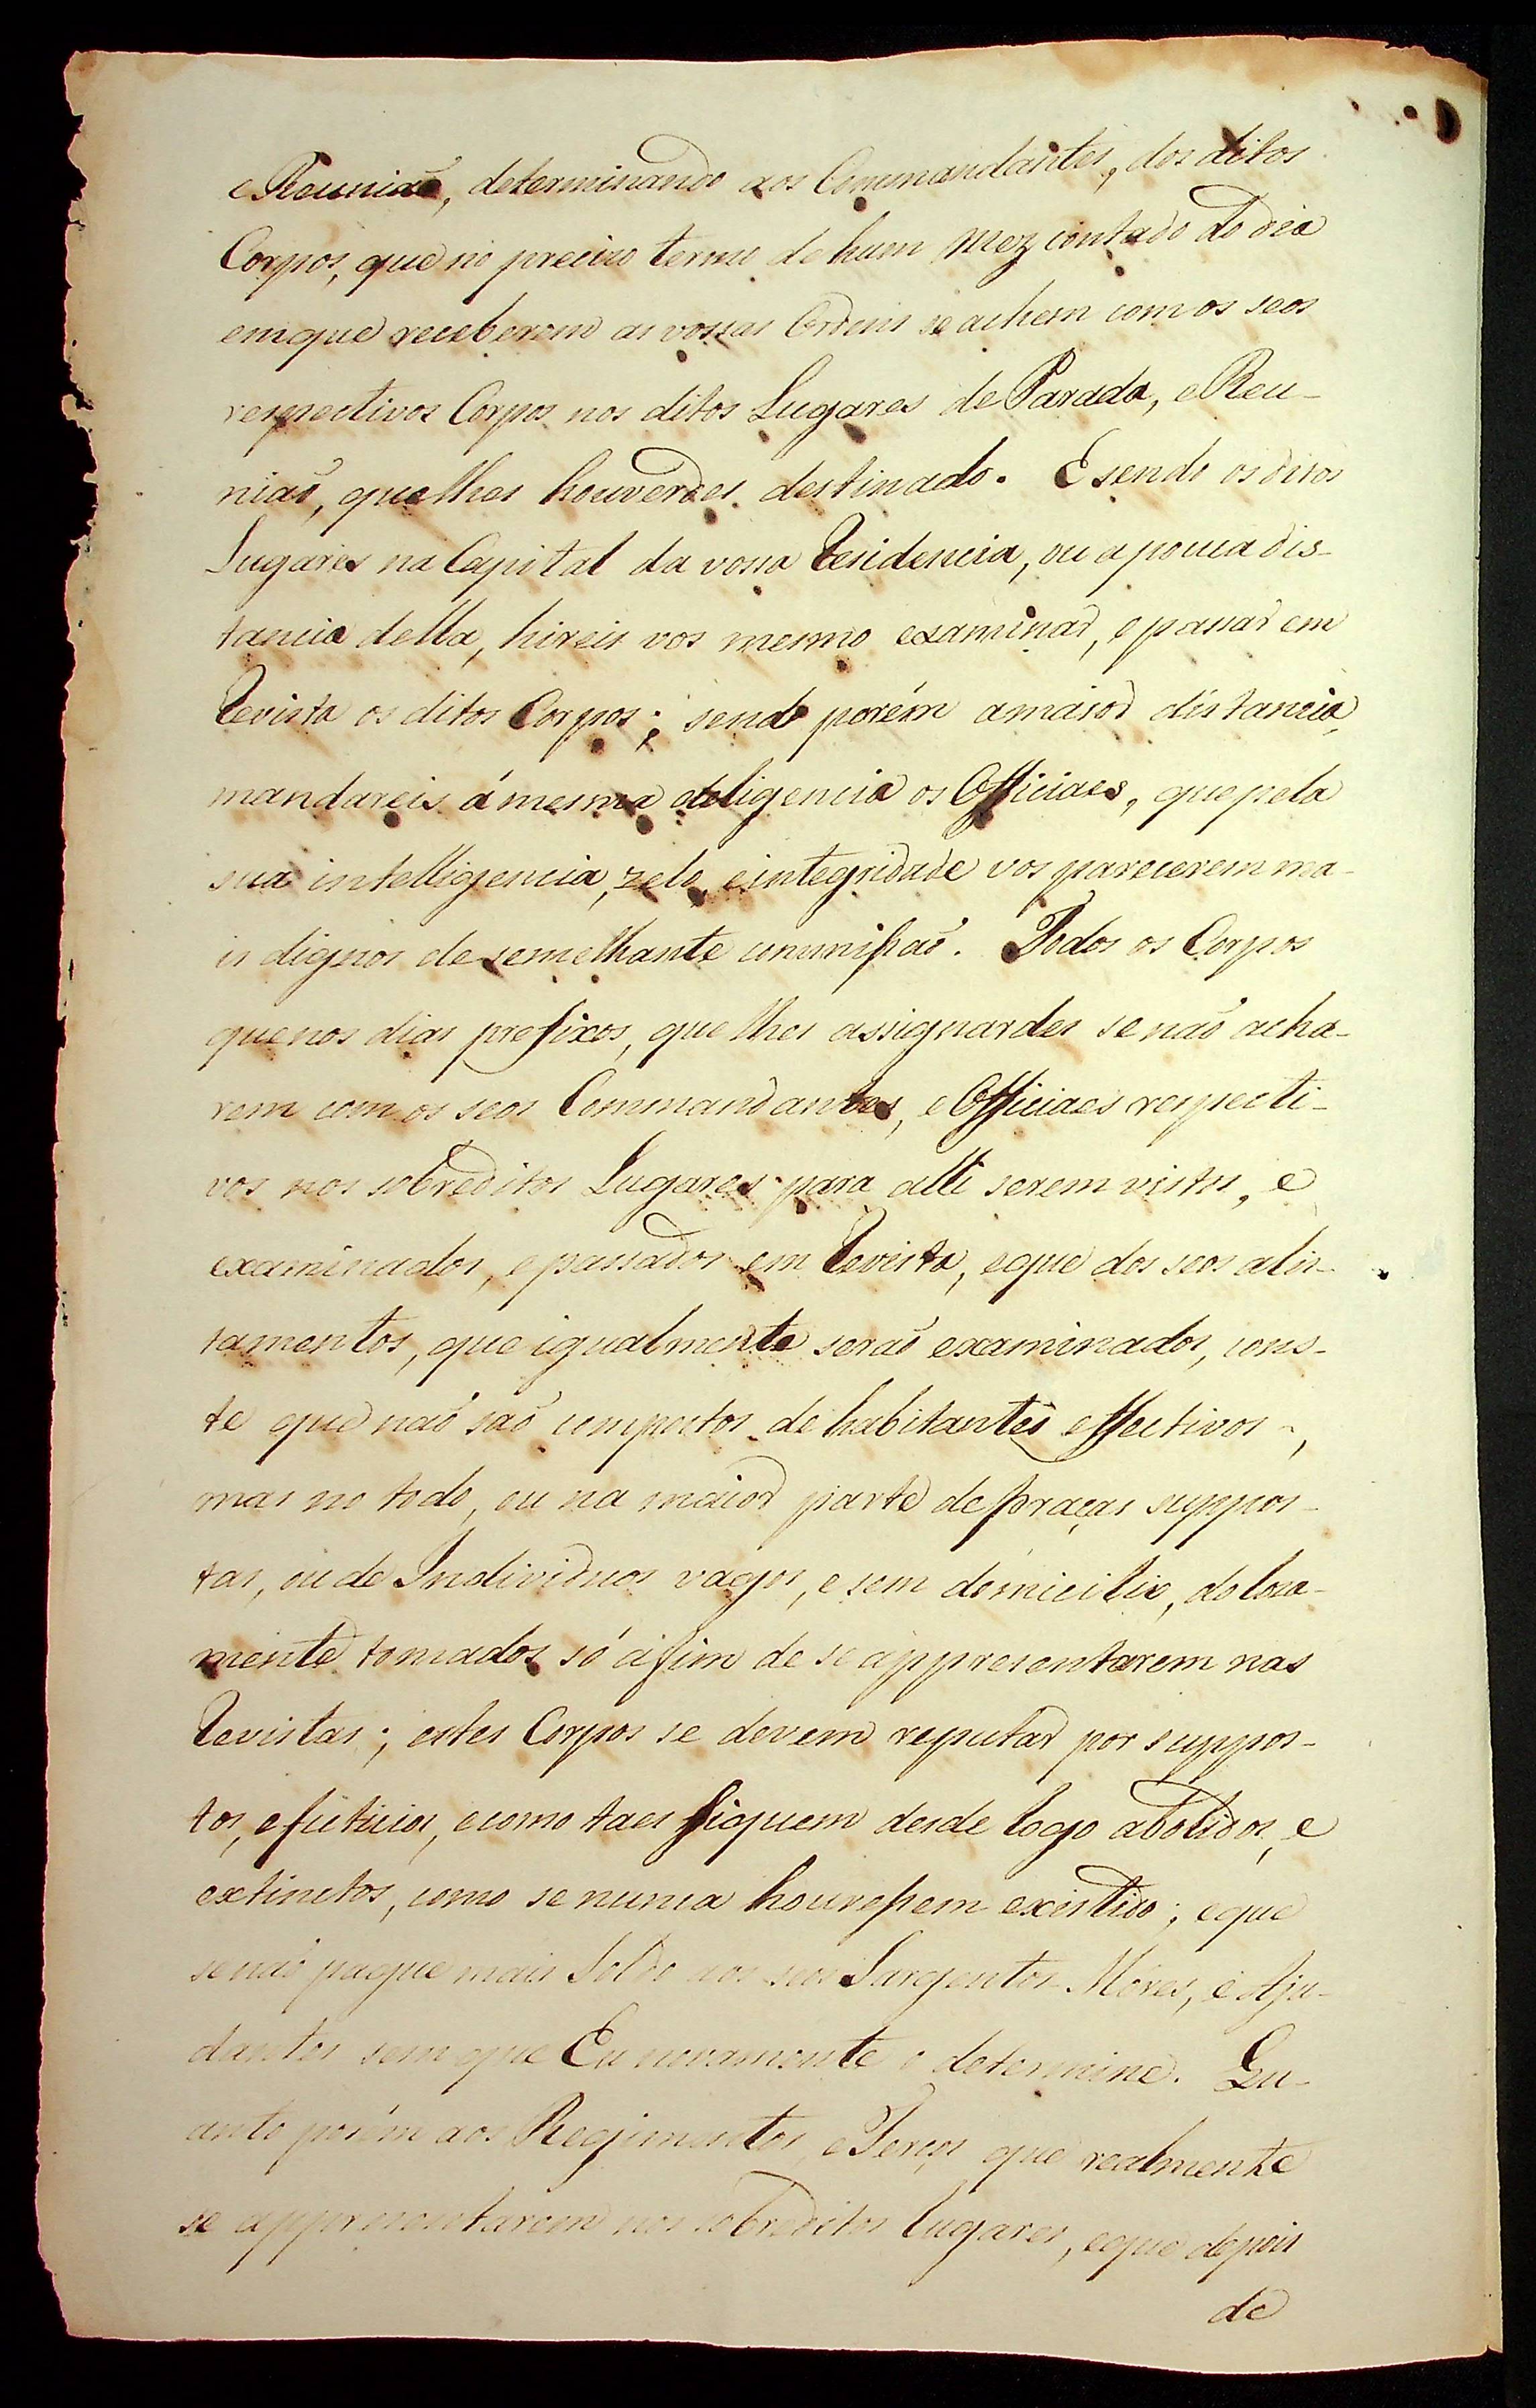 e Reuniaõ, determinando aos Commandantes, dos ditos
Corpos, que no precizo termo de hum Mez contado do dia
em que receberem as vossas Ordens se achem com os seos
respectivos Corpos nos ditos Lugares de Parada, e Reu-
niaõ, que lhes houverdes destinado. E sendo os ditos
Lugares na Capital da vossa Residencia, ou a pouca dis-
tancia della, hireis vos mesmo examinar, e passar em
Revista os ditos Corpos; sendo porém a maior distancia,
mandareis á mesma deligencia os Officiaes, que pela
sua intelligencia, zelo, e integridade vos parecerem ma-
is dignos de semelhante commissaõ. Todos os Corpos
que nos dias prefixos, que lhes assignardes se naõ acha-
rem com os seos Commandantes, e Officiaes respecti-
vos nos sobreditos Lugares para alli serem vistos, e
examinados, e passados em Revista, e que dos seos alis-
tamentos, que igualmente seraõ examinados, cons-
te que naõ saõ compostos de habitantes effectivos,
mas no todo, ou na maior parte de praças suppos-
tas, ou de Individuos vagos, e sem domicilio, doloza-
mente tomados só áfim de se appresentarem nas
Revistas; estes Corpos se devem reputar por suppos-
tos, e ficticios, e como taes fiquem desde logo abolidos, e
extinctos, como se nunca houvessem existido; e que
se naõ pague mais Soldo aos seos Sargentos Móres, e Aju-
dantes sem que Eu novamente o determine. Qu-
anto porém aos Regimentos, e Terços que realmente
se appresentarem nos sobreditos lugares, e que depois
de